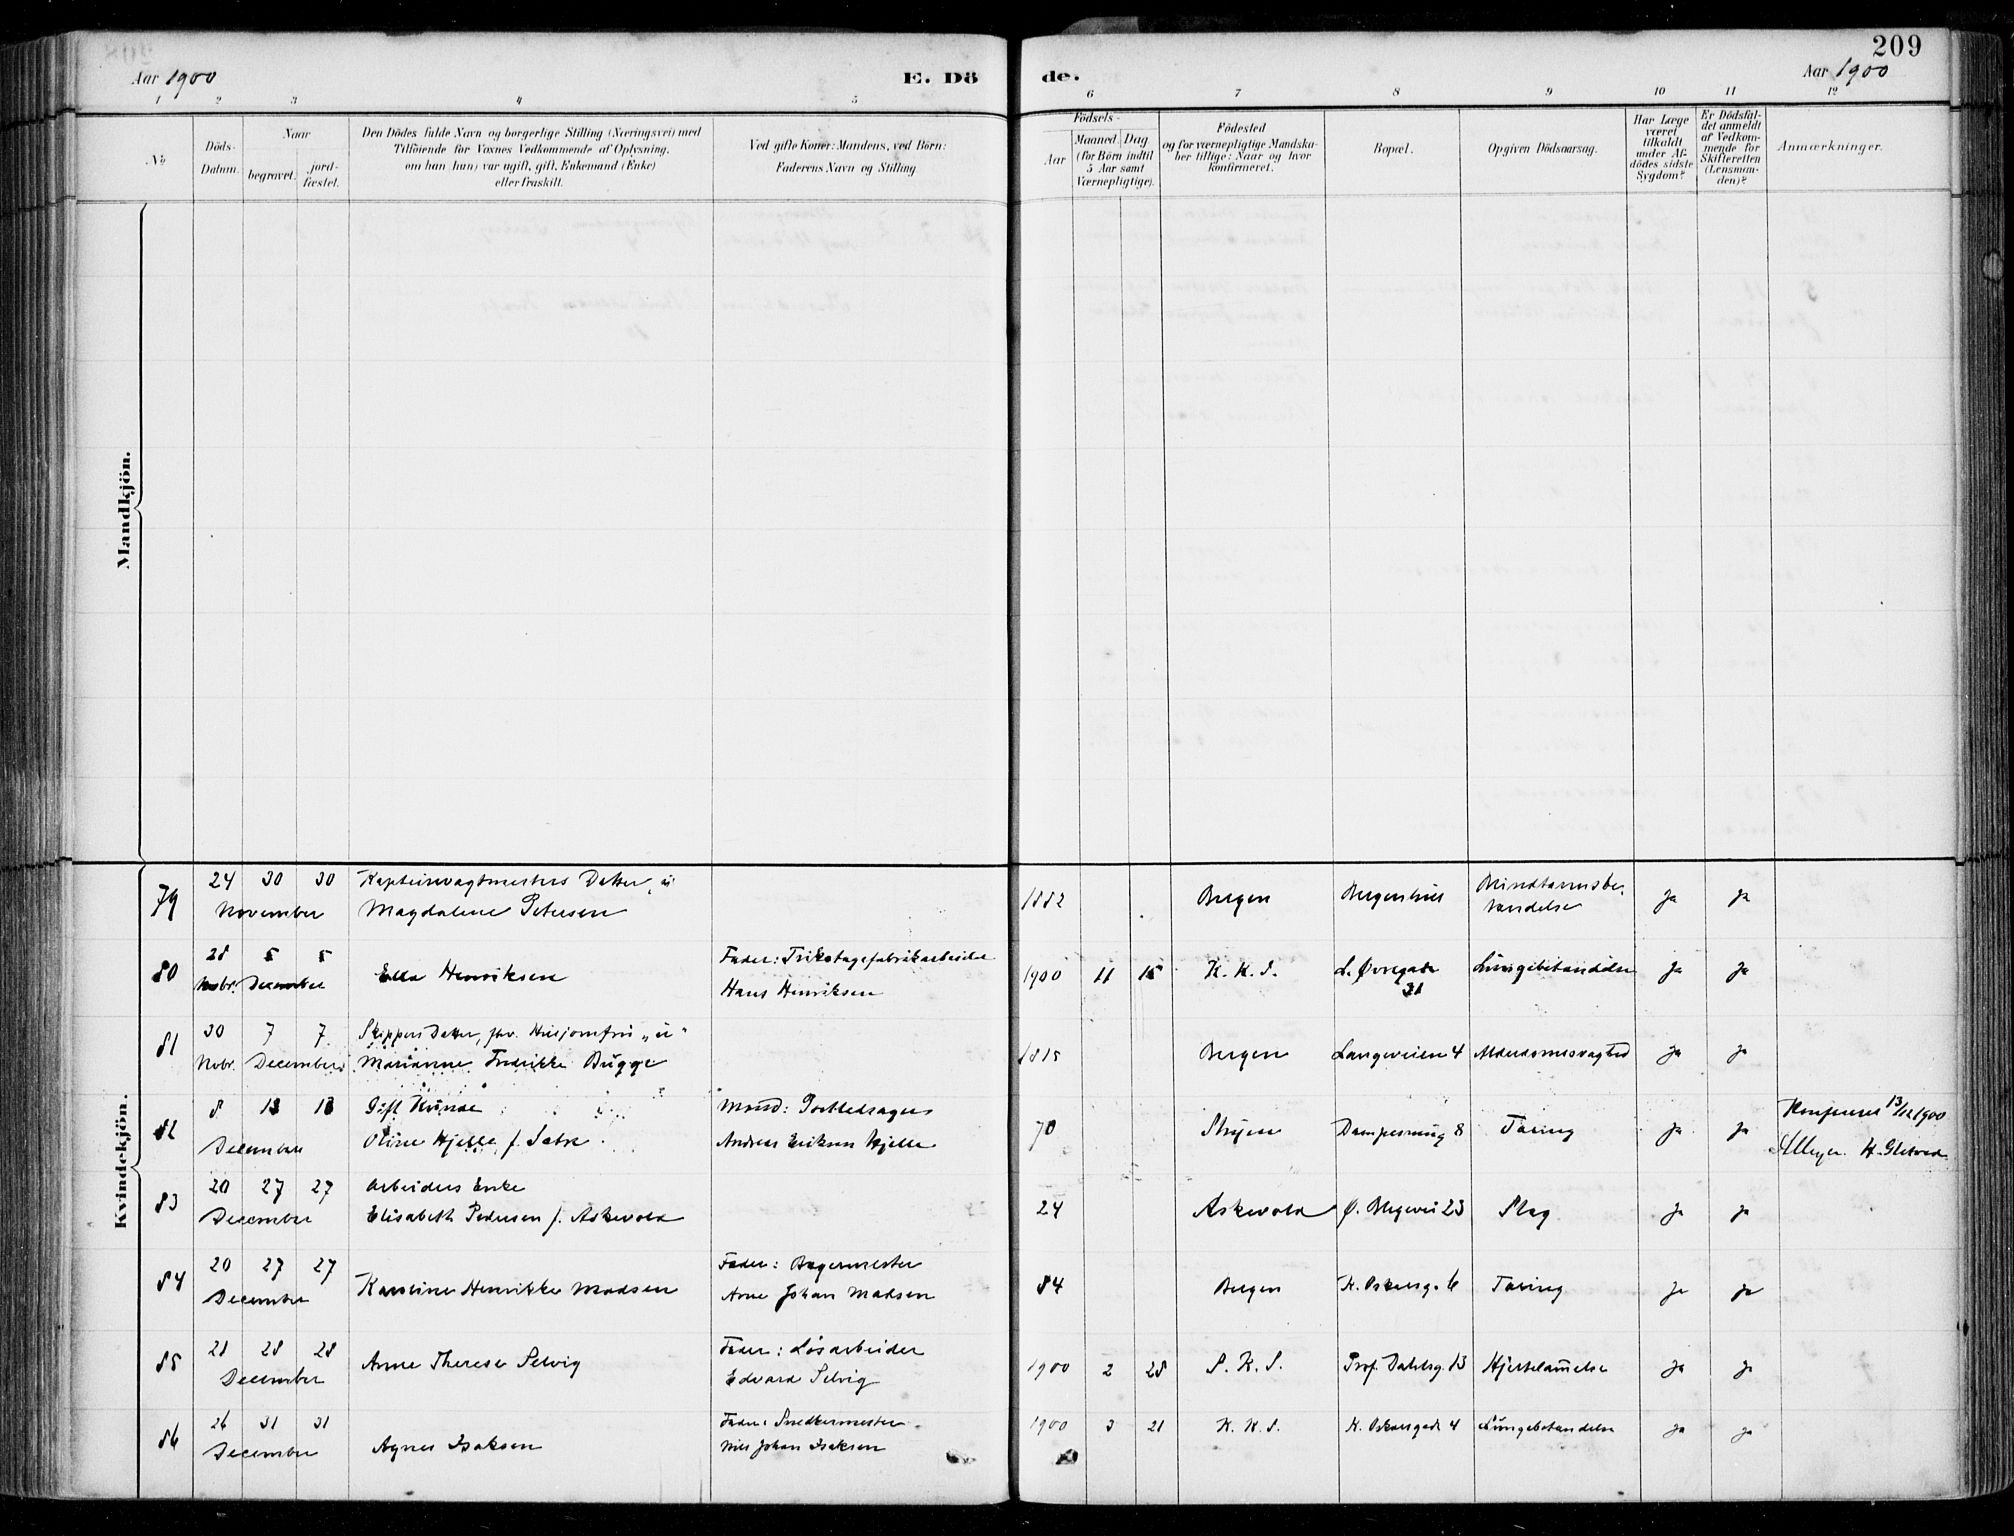 209
Aar 1900 E. Dö de. Aar 1900
1 2 3 4 5 6 7 8 9 10 11 12
No
Döds-
Datum.
Naar
begravet.
jord-
fæstet.
Den Dödes fulde Navn og borgerlige Stilling (Næringsvei) med
Tilföiende for Voxnes Vedkommende af Oplysning,
om han (hun) var ugift, gift, Enkemand (Enke)
eller fraskilt.
Ved gifte Koner: Mandens, ved Börn:
Faderens Navn og Stilling
Födsels-
Aar
Maaned. Dag
(for Börn indtil
5 Aar samt
Værnepligtige).
Födested
og for værnepligtige Mandska-
ber tillige: Naar og hvor
konfirmeret.
Bopæl.
Opgiven Dödsaarsag.
Har Læge
været
tilkaldt
under Af-
dödes sidste
Sygdom?
Er Dödsfal-
det anmeldt
af Vedkom-
mende for
Skifteretten
(Lensman-
den)?
Anmærkninger.
Mandkjön.
Kvindekjön.
79 24 30 30 November
Kapteinvagtmesters Datter, "u"
Magdalene Petersen
1882 Bergen Bergenhus Blindtarmsbe-
tændelse Ja Ja
80 28 5 5
Nobr. December
Ella Henriksen
Fader: Trikotagefabrikarbeider
Hans Henriksen
1900 11 15 K. K. S. L. Øvregade
31
Lungebetændelse Ja Ja
81 30 7 7
Nobr. December
Skippers Datter, fhv. Husjomfru "u"
Marianne Fredrikke Bugge
1815 Bergen Langeveien 4 Alderdomssvaghed Ja Ja
82 8 13 13
December
Gift Kvinde
Oline Hjelle f. Sætre
Mand:
Andreas Eriksen Hjelle
70 Stryen Dampesmug 8 Tæring Ja Ja
13/12 1900
83 20 27 27
December
Arbeiders Enke
Elisabeth Pedersen f. Askevold
24 Askevold Ø. Blegevei 23 Slag Ja Ja
84 20 27 27
December
Karoline Henrikke Madsen
Fader: Bagermester
Arne Johan Madsen
84 Bergen K. Oskarsg. 6 Tæring Ja Ja
85 21 28 28
December
Anne Therese Selvig
Fader: Løsarbeider
Edvard Selvig
1900 2 28 S. K. S. Prof. Dahlsg. 13 Hjertelammelse Ja Ja
86 26 31 31
December
Agnes Isaksen
Fader: Snedkermester
Nils Johan Isaksen
1900 3 21 K. K. S. K. Oskarsgade 4 Lungebetændelse Ja Ja